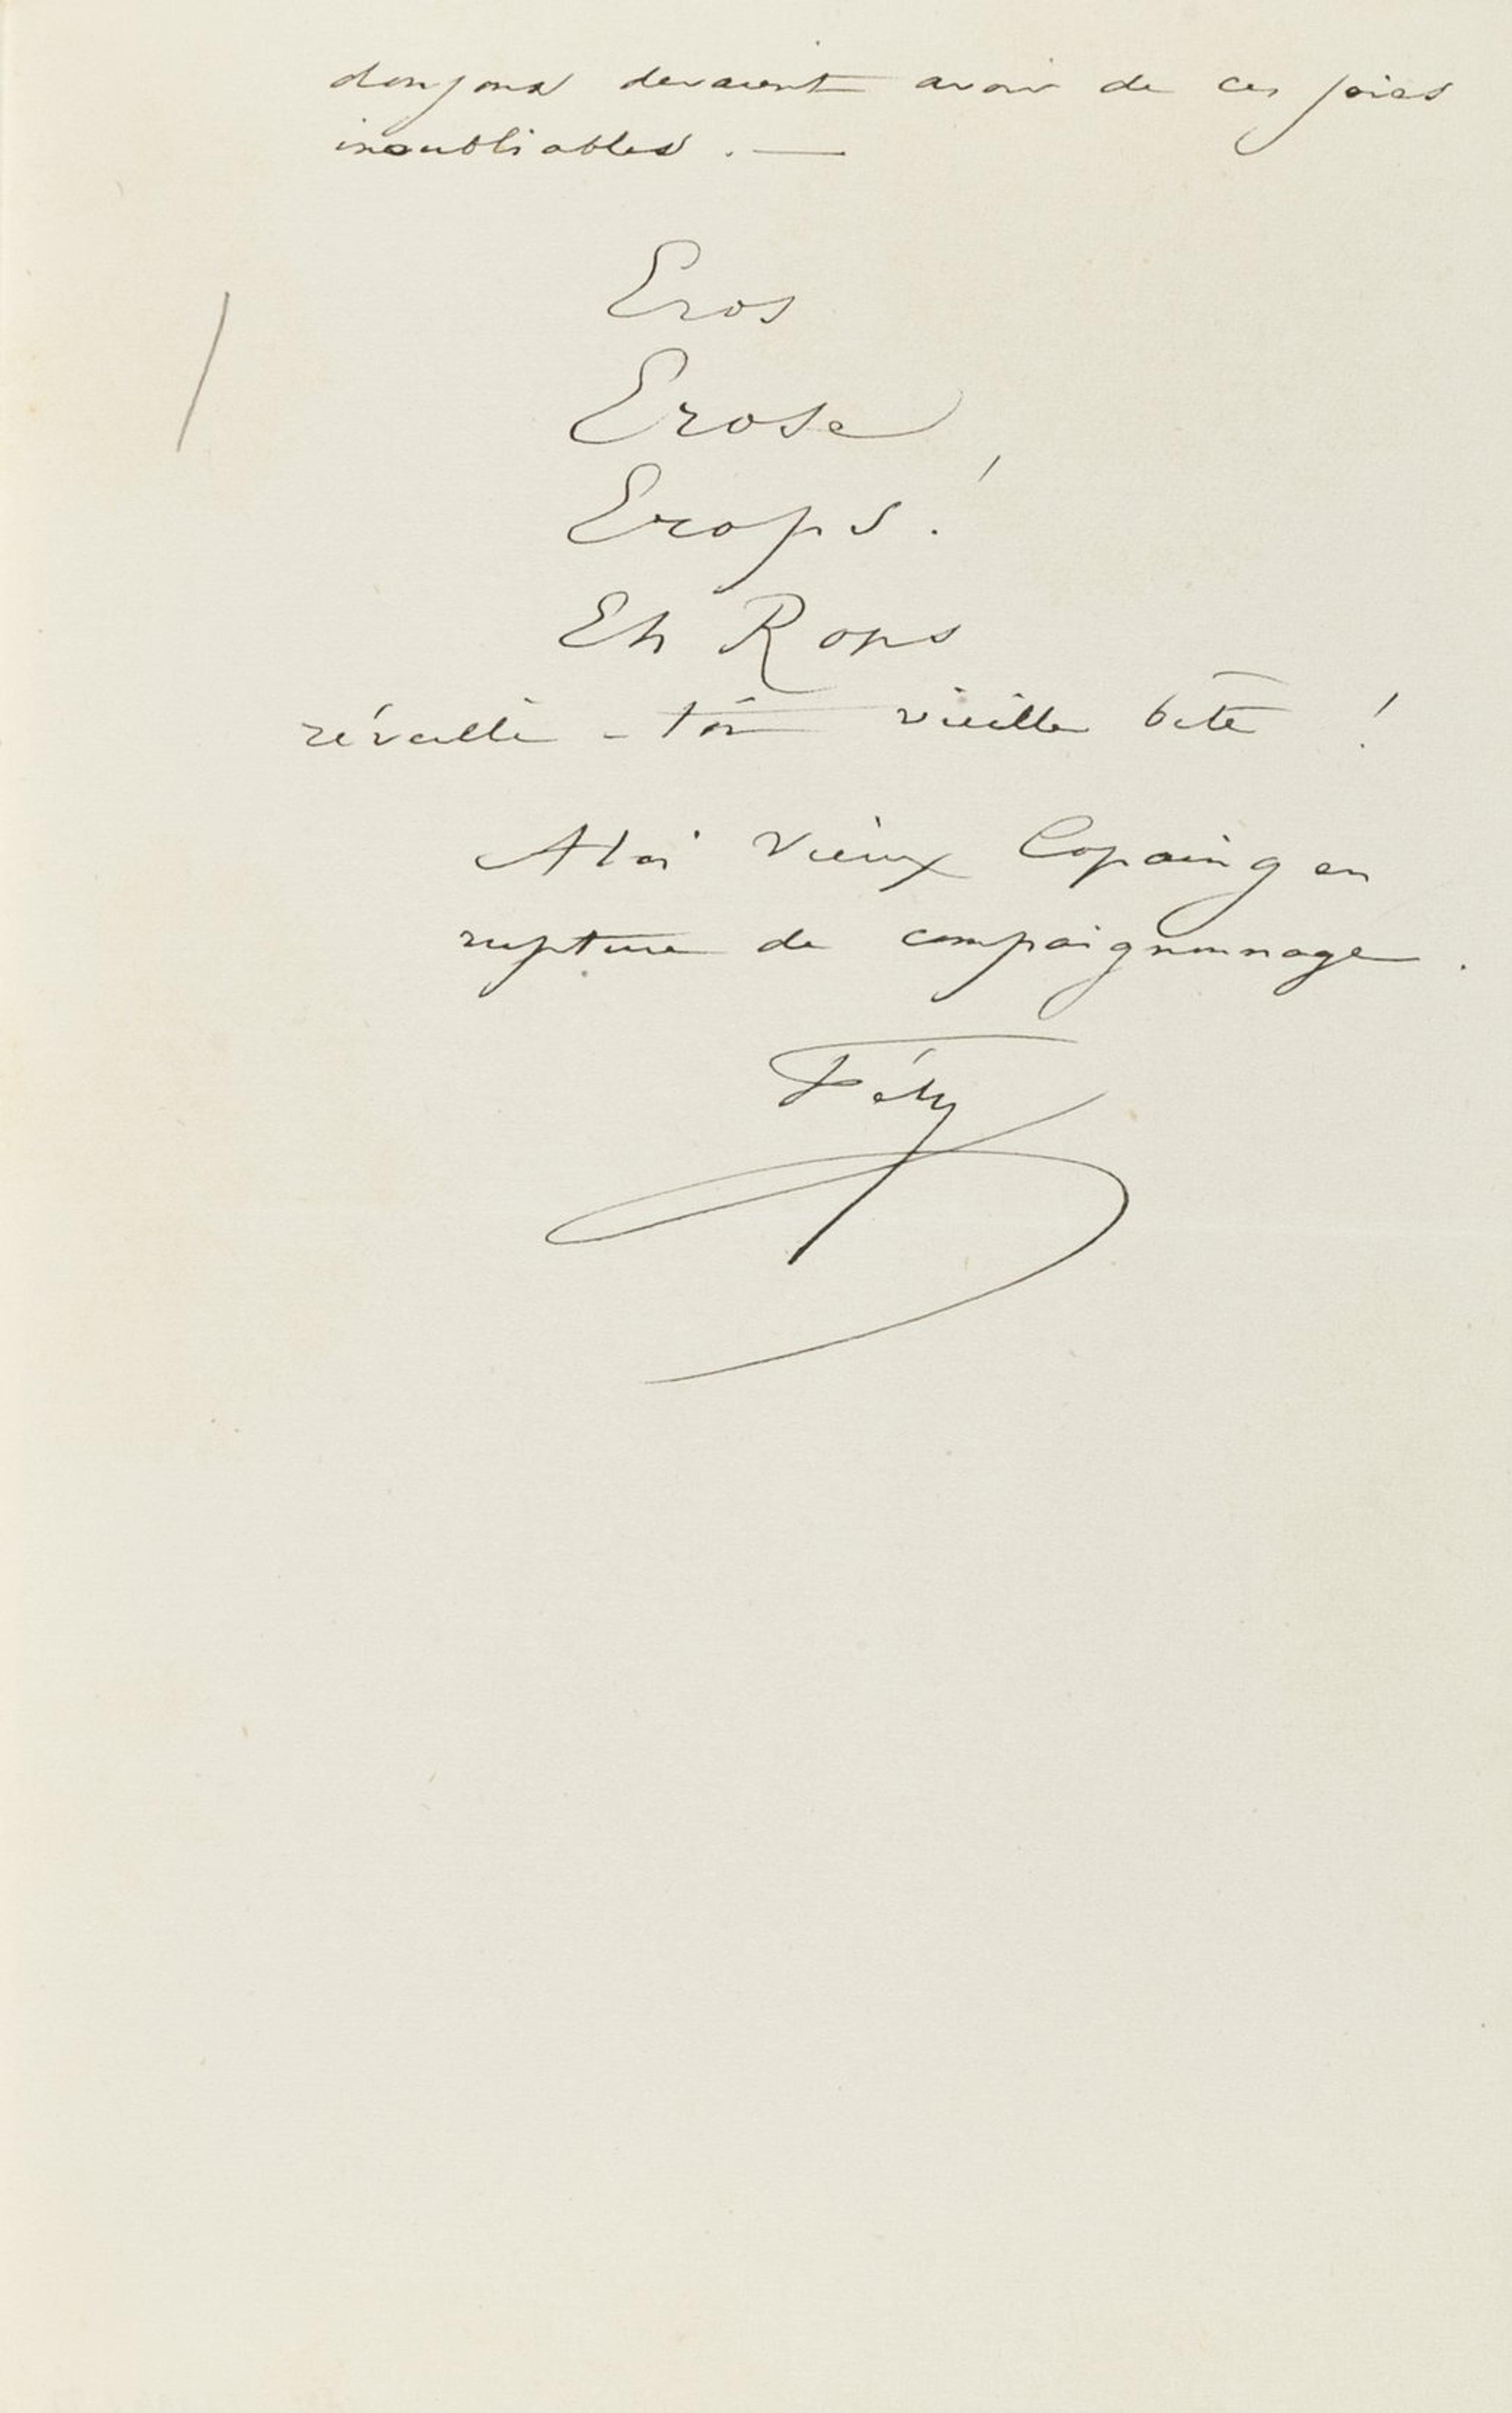 donjons devaient avoir de ces joies
inoubliables . —
Eros
Erose
Erops !
Eh Rops
réveille - toi vieille bête !
A toi Vieux Copaing en
rupture de compaignonnage .
Fély